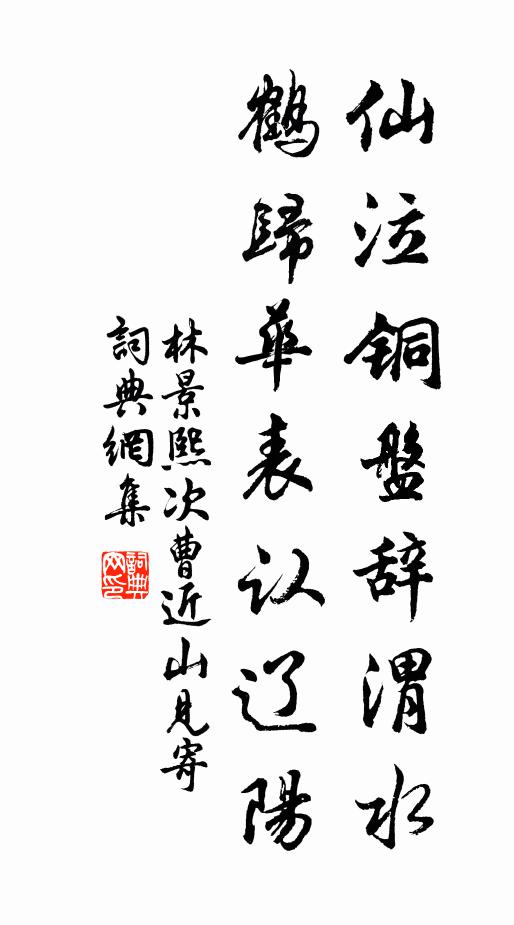 仙泣铜盤辞渭水
鶴歸華表认辽陽
林景熙次曹近山見寄
詞典網集
詞典网印